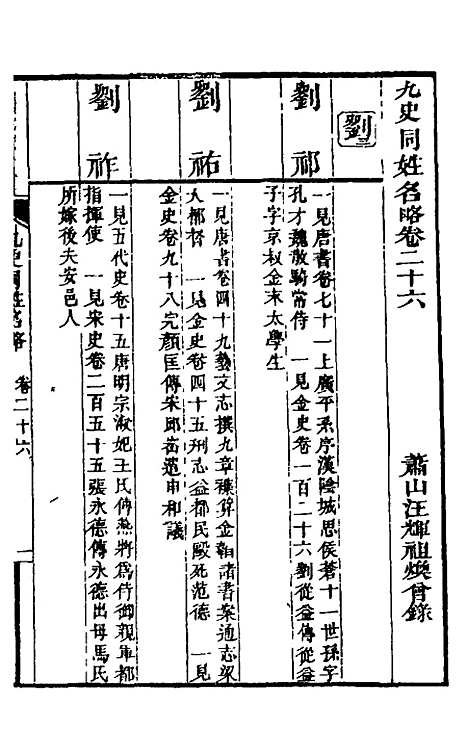 九史同姓名略卷二十六
蕭山汪輝祖煥曾錄
劉三
劉祁
一見唐書卷七十一上廣平系序漢陰城思侯蒼十一世孫字
孔才魏散騎常侍 一見金史卷一百二十六劉從益傳從益
子字京叔金末太學生
劉祐
一見唐書卷四十九藝文志撰九章雜算金韜諸書案通志梁
人都督 一見金史卷四十五刑志益都民毆死范德 一見
金史卷九十八完顏匡傳宋邱崈遣申和議
劉祚
一見五代史卷十五唐明宗淑妃王氏傳燕將為侍御親軍都
指揮使 一見宋史卷二百五十五張永德傳永德出母馬氏
所嫁後夫安邑人
九史同姓名略 卷二十六 一